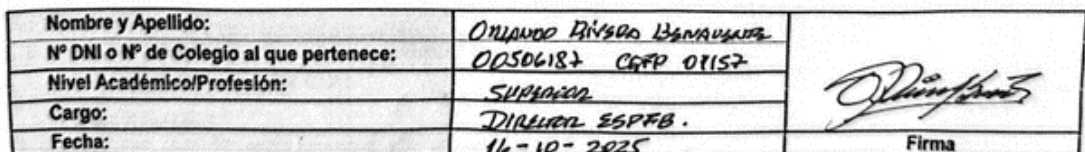 Nombre y Apellido: ORLANDO RIVERA BENAVENTE
Nº DNI o Nº de Colegio al que pertenece: 00506187 CGFP 01157
Nivel Académico/Profesión: SUPERIOR
Cargo: DIRECTOR ESPFB.
Fecha: 14-10-2025
Firma